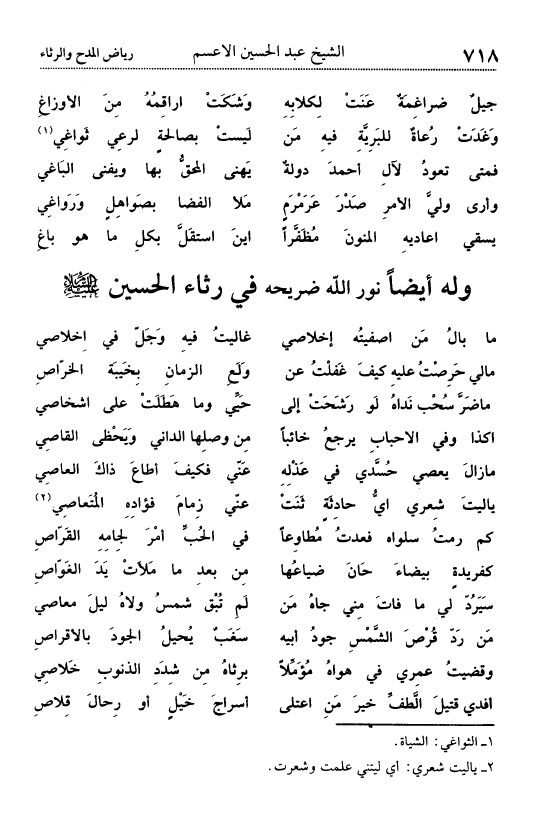 ٧١٨ الشيخ عبد الحسين الاعسم رياض المدح والرثاء
جيلٌ ضراغمةٌ عَنَتْ لِكلابِهِ وَشَكَتْ اراقِمُهُ مِنَ الأوزاغِ
وغَدَتْ رُعاةً للبَرِيَّةِ فيهِ مَن لَيسَتْ بصالحةٍ لرعي ثَواغي(١)
فمتى تعودُ لآلِ أحمدَ دولةٌ يَهنى المحقُّ بها ويفنى البَاغي
وارى وليَّ الأمرِ صَدْرَ عَرَمْرَمٍ مَلا الفضا بصَواهِلٍ وَرَواغي
يسقي اعاديهِ المنونَ مُظَفَّراً اينَ استقلَّ بكلِ ما هو باغِ
وله أيضاً نور الله ضريحه في رثاء الحسين عليه السلام
ما بالُ مَن اصفيتُه إخلاصي غاليتُ فيهِ وَجَلّ في اخلاصي
مالي حَرِصْتُ عليهِ كيفَ غَفَلْتُ عن وَلَعِ الزمانِ بخَيبَةِ الحَرّاصِ
ماضَرَّ سُحْبَ نَداهُ لَو رَشَحَتْ إلى حَيِّي وما هَطَلَتْ على اشخاصي
اكذا وفي الاحبابِ يرجعُ خائباً مِن وصلِها الداني وَيَحْظى القاصي
مازالَ يعصي حُسَّدي في عَذْلِهِ عَنّي فكيفَ أطاعَ ذاكَ العاصي
ياليتَ شعري ايُّ حادثةٍ ثَنَتْ عنّي زِمامَ فؤادِهِ المُتَعاصي(٢)
كم رمتُ سلواه فعدتُ مُطاوِعاً في الحُبِّ أمْرَ لجامِهِ القَرّاصِ
كفريدةٍ بيضاءَ حَانَ ضياعُها مِن بعدِ ما مَلأتْ يَدَ الغَوّاصِ
سَيَرُدّ لي ما فاتَ مِني جاهُ مَن لَم تُبْقِ شمسُ ولاهُ ليلَ معاصي
مَن رَدّ قُرْصَ الشَّمْسِ جودُ أبيهِ سَغَبٌ يُحيلُ الجودَ بالاقراصِ
وقضيتُ عمري في هواهُ مُؤمِّلاً برِثاهُ مِن شِدَدِ الذنوبِ خَلاصي
أفدي قتيلَ الَّطفِّ خيرَ مَنِ اعتلى أسراجَ خَيْلٍ أو رِحالَ قِلاصِ
١ـ الثواغي: الشياة.
٢ـ ياليت شعري: أي ليتني علمت وشعرت.